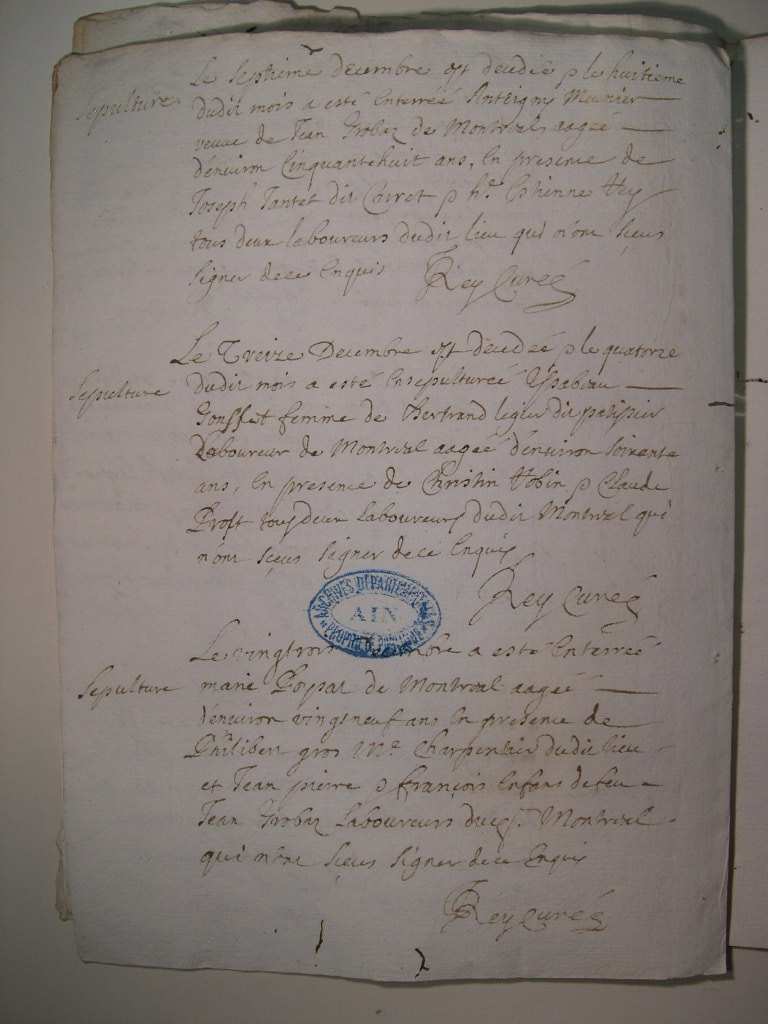 Sepulture
Le septieme decembre est decedée & le huitieme
dudit mois a esté enterreé Meunier
veuve de Jean Grobaz de Montreal aageé
d'environ cinquantehuit ans, en presence de
Joseph Tantet dit Cairet & hⁿ. Estienne
tous deux laboureurs dudit lieu qui n'ont sçeus
signer dece enquis Rey curé
Sepulture
Le Treize Decembre est decedeé & le quatorze
dudit mois a esté ensepultureé Ysabeau
Gouffet femme de Bertrand legier dit patissier
Laboureur de Montreal aageé d'environ soixante
ans, en presence de Christin & Claude
Proft tous deux Laboureurs dudit Montreal qui
n'ont sçeus signer dece enquis
Rey curé
ARCHIVES DÉPARTEMENTALES
AIN
PROPRIÉTÉ PUBLIQUE
Sepulture
Le vingtrois decembre a esté enterreé
marie Poysat de Montreal aageé
d'environ vingtneuf ans en presence de
Philibert gros Mᵉ. Charpentier dudit lieu
et Jean pierre & françois enfans de feu
Jean Grobaz Laboureurs dud. Montreal
qui n'ont sçeus signer dece enquis
Rey curé